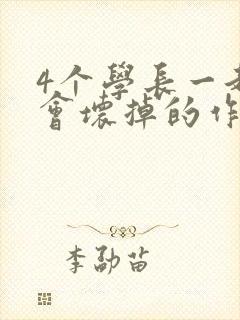 4个學長一
會壞掉的作
李劭苗